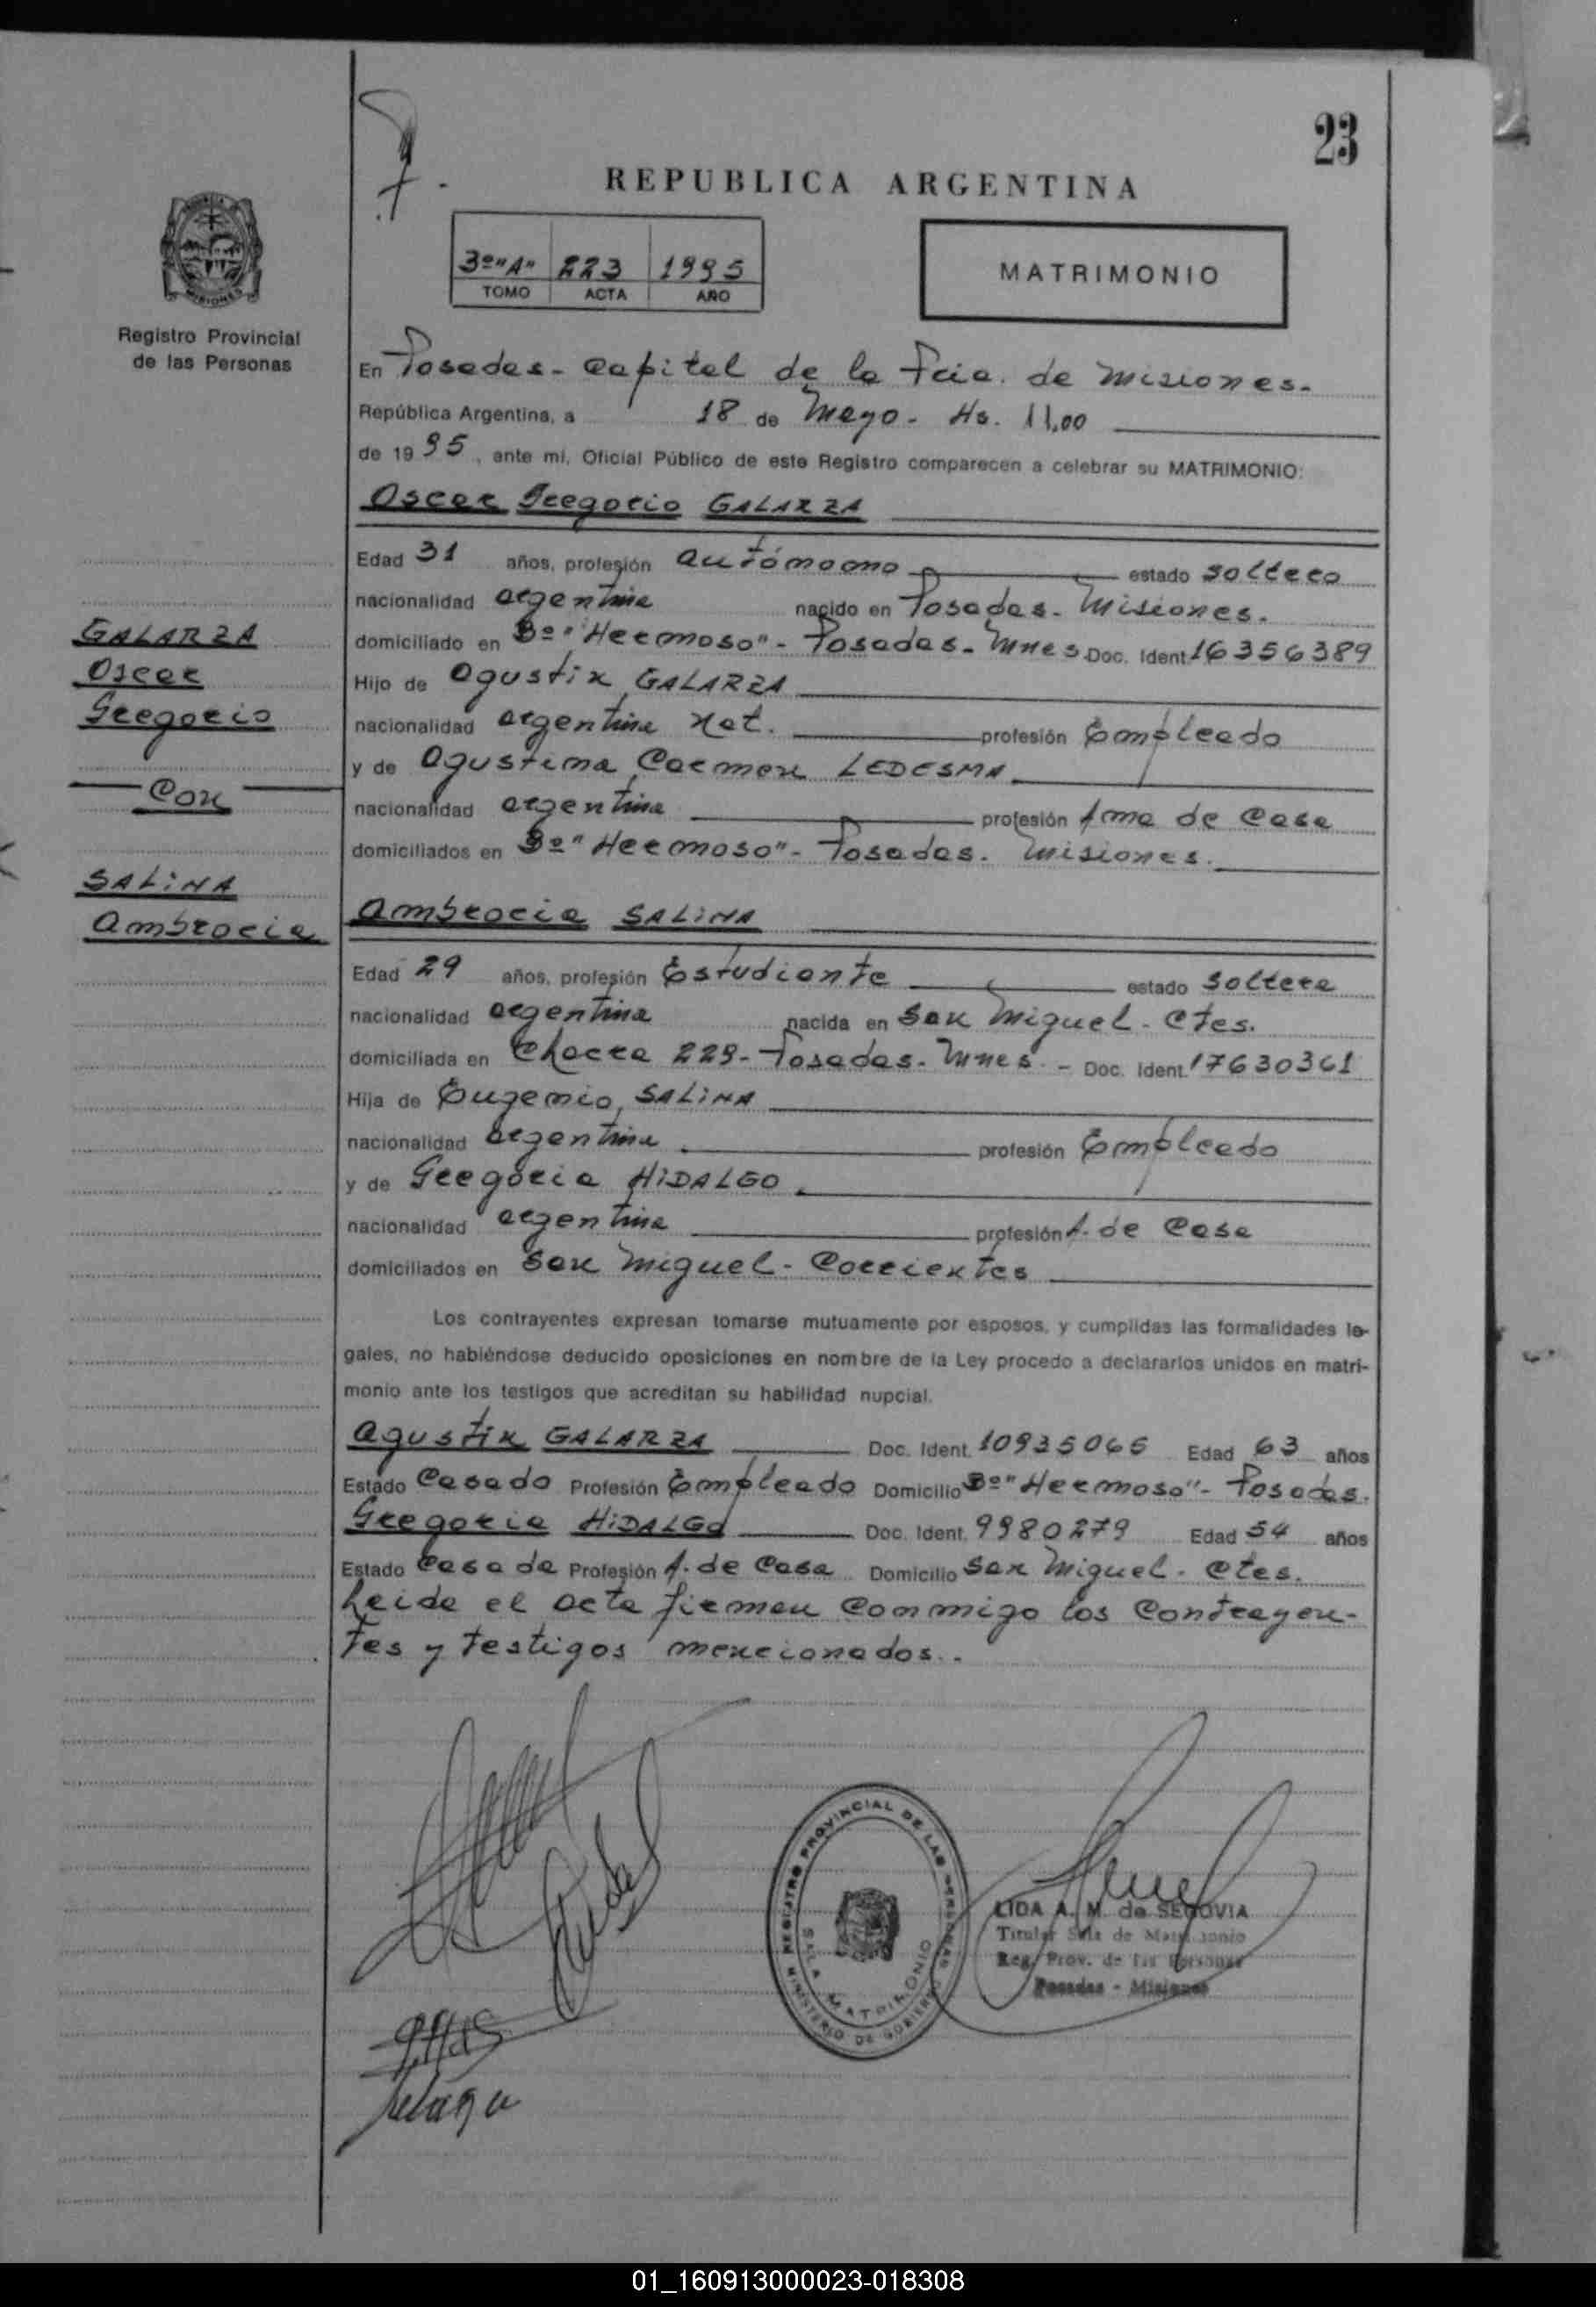 23
REPUBLICA ARGENTINA
3º"A" 223 1995
TOMO ACTA AÑO
MATRIMONIO
MISIONES
Registro Provincial
de las Personas
En Posadas - Capital de la Pcia. de Misiones.
República Argentina, a 18 de Mayo - Hs. 11,00
de 1995, ante mí, Oficial Público de este Registro comparecen a celebrar su MATRIMONIO:
Oscar Gregorio GALARZA
Edad 31 años, profesión autónomo estado soltero
nacionalidad argentina nacido en Posadas - Misiones.
domiciliado en Bº "Hermoso" - Posadas - Mnes Doc. Ident. 16356389
Hijo de Agustín GALARZA
nacionalidad argentina Nat. profesión Empleado
y de Agustina Carmen LEDESMA
nacionalidad argentina profesión Ama de Casa
domiciliados en Bº "Hermoso" - Posadas. Misiones.
GALARZA
Oscar
Gregorio
Con
SALINA
Ambrocia
Ambrocia SALINA
Edad 29 años, profesión Estudiante estado soltera
nacionalidad argentina nacida en San Miguel - Ctes.
domiciliada en Chacra 229 - Posadas - Mnes. - Doc. Ident. 17630361
Hija de Eugenio, SALINA
nacionalidad argentina profesión Empleado
y de Gregoria HIDALGO
nacionalidad argentina profesión A. de Casa
domiciliados en San Miguel - Corrientes
Los contrayentes expresan tomarse mutuamente por esposos, y cumplidas las formalidades le-
gales, no habiéndose deducido oposiciones en nombre de la Ley procedo a declararlos unidos en matri-
monio ante los testigos que acreditan su habilidad nupcial.
Agustín GALARZA Doc. Ident. 10935065 Edad 63 años
Estado Casado Profesión Empleado Domicilio Bº "Hermoso" - Posadas.
Gregoria HIDALGO Doc. Ident. 9980279 Edad 54 años
Estado Casada Profesión A. de Casa Domicilio San Miguel - Ctes.
Leida el acta firman conmigo los contrayen-
tes y testigos mencionados..
REGISTRO PROVINCIAL DE LAS PERSONAS
SALA MATRIMONIO
MINISTERIO DE GOBIERNO
LIDA A. M. de SEGOVIA
Titular Sala de Matrimonio
Reg. Prov. de las Personas
Posadas - Misiones
01_160913000023-018308